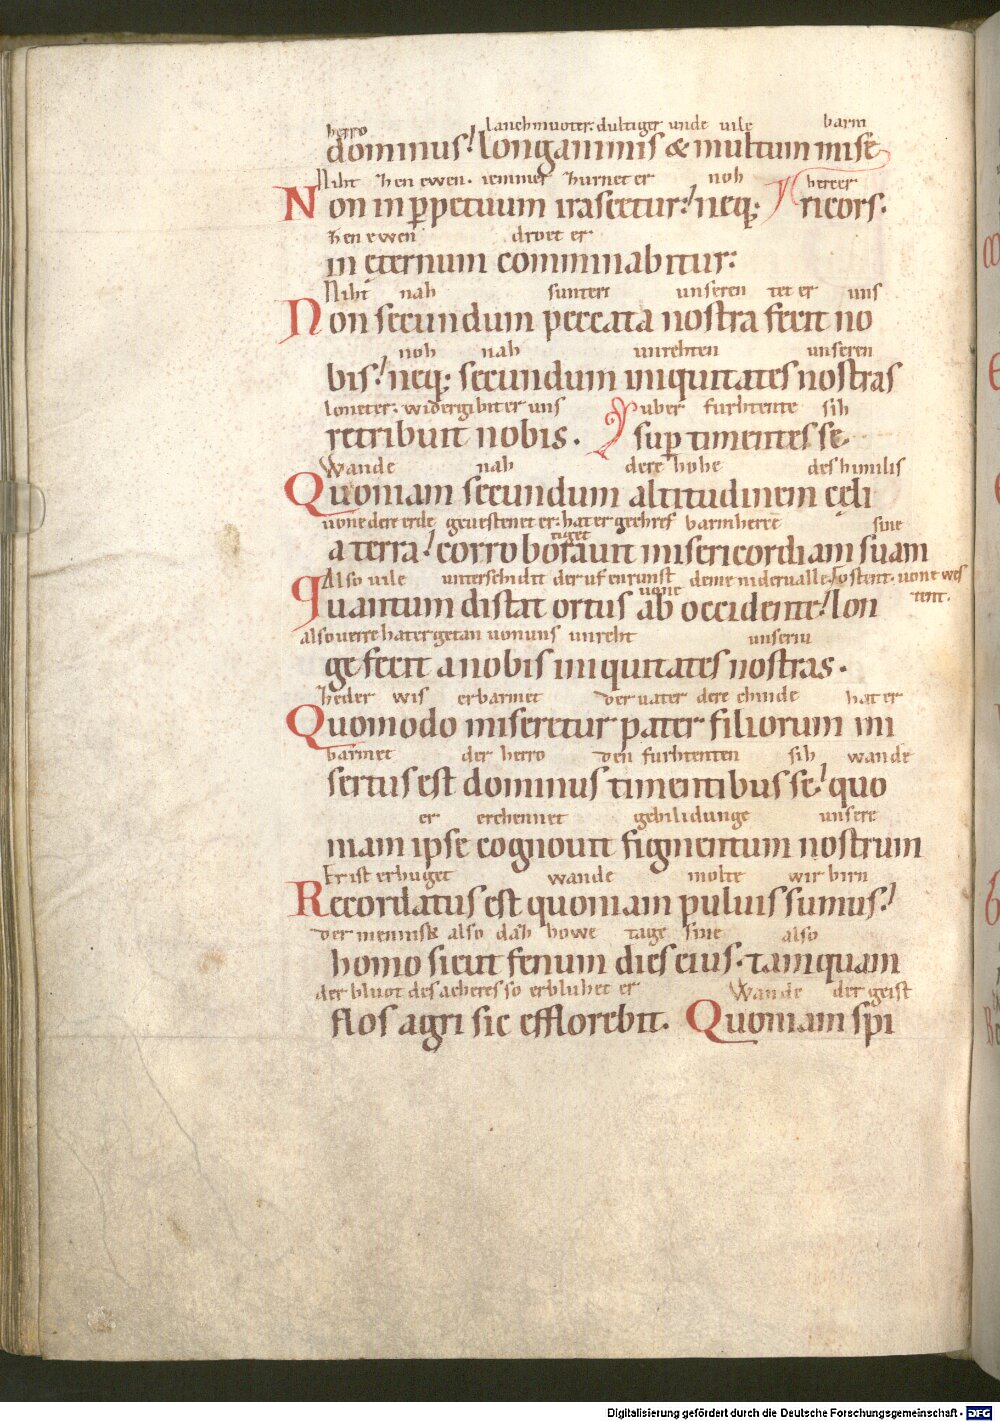 herro lanchmuoter. dultiger unde uile barm
dominus! longanimis & multum mise
Niht hen ewen. iemmer hurnet er noh herzer
Non in ꝑpetuum irascetur! neq; ricors.
hen ewen droet er
in ęternum comminabitur:
Niht nah sunten unseren tet er uns
Non secundum peccata nostra fecit no
noh nah unrehten unseren
bis! neq; secundum iniquitates nostras
loneter. widergibiter uns uber furhtente sih
retribuit nobis. suꝑ timentes se.
Wande nah dere hohe des himilis
Quoniam secundum altitudinem cęli
uone dere erde geuestenet er. hat er geehref barmherce sine
tiget
a terra! corroborauit misericordiam suam
Also uile unterschidit der uf en runst deme nidervalle. sostent. uone wes
uone tent.
quantum distat ortus ab occidente! lon
also uerre hater getan uon uns unreht unseriu
ge fecit a nobis iniquitates nostras.
heder wis erbarmet der uater dere chinde hat er
Quomodo miseretur pater filiorum mi
barmet der herro den furhtenten sih wande
sertus est dominus timentibus se! quo
er erchennet gebilidunge unsere
niam ipse cognouit figmentum nostrum
Er ist erhuget wande molte wir birn
Recordatus est quoniam puluis sumus!
der mennisk also dah howe tage sine also
homo sicut fenum dies eius. tamquam
der bluot des acheres so erbluhet er Wande der geist
flos agri sic efflorebit. Quoniam spi
Digitalisierung gefördert durch die Deutsche Forschungsgemeinschaft - DFG